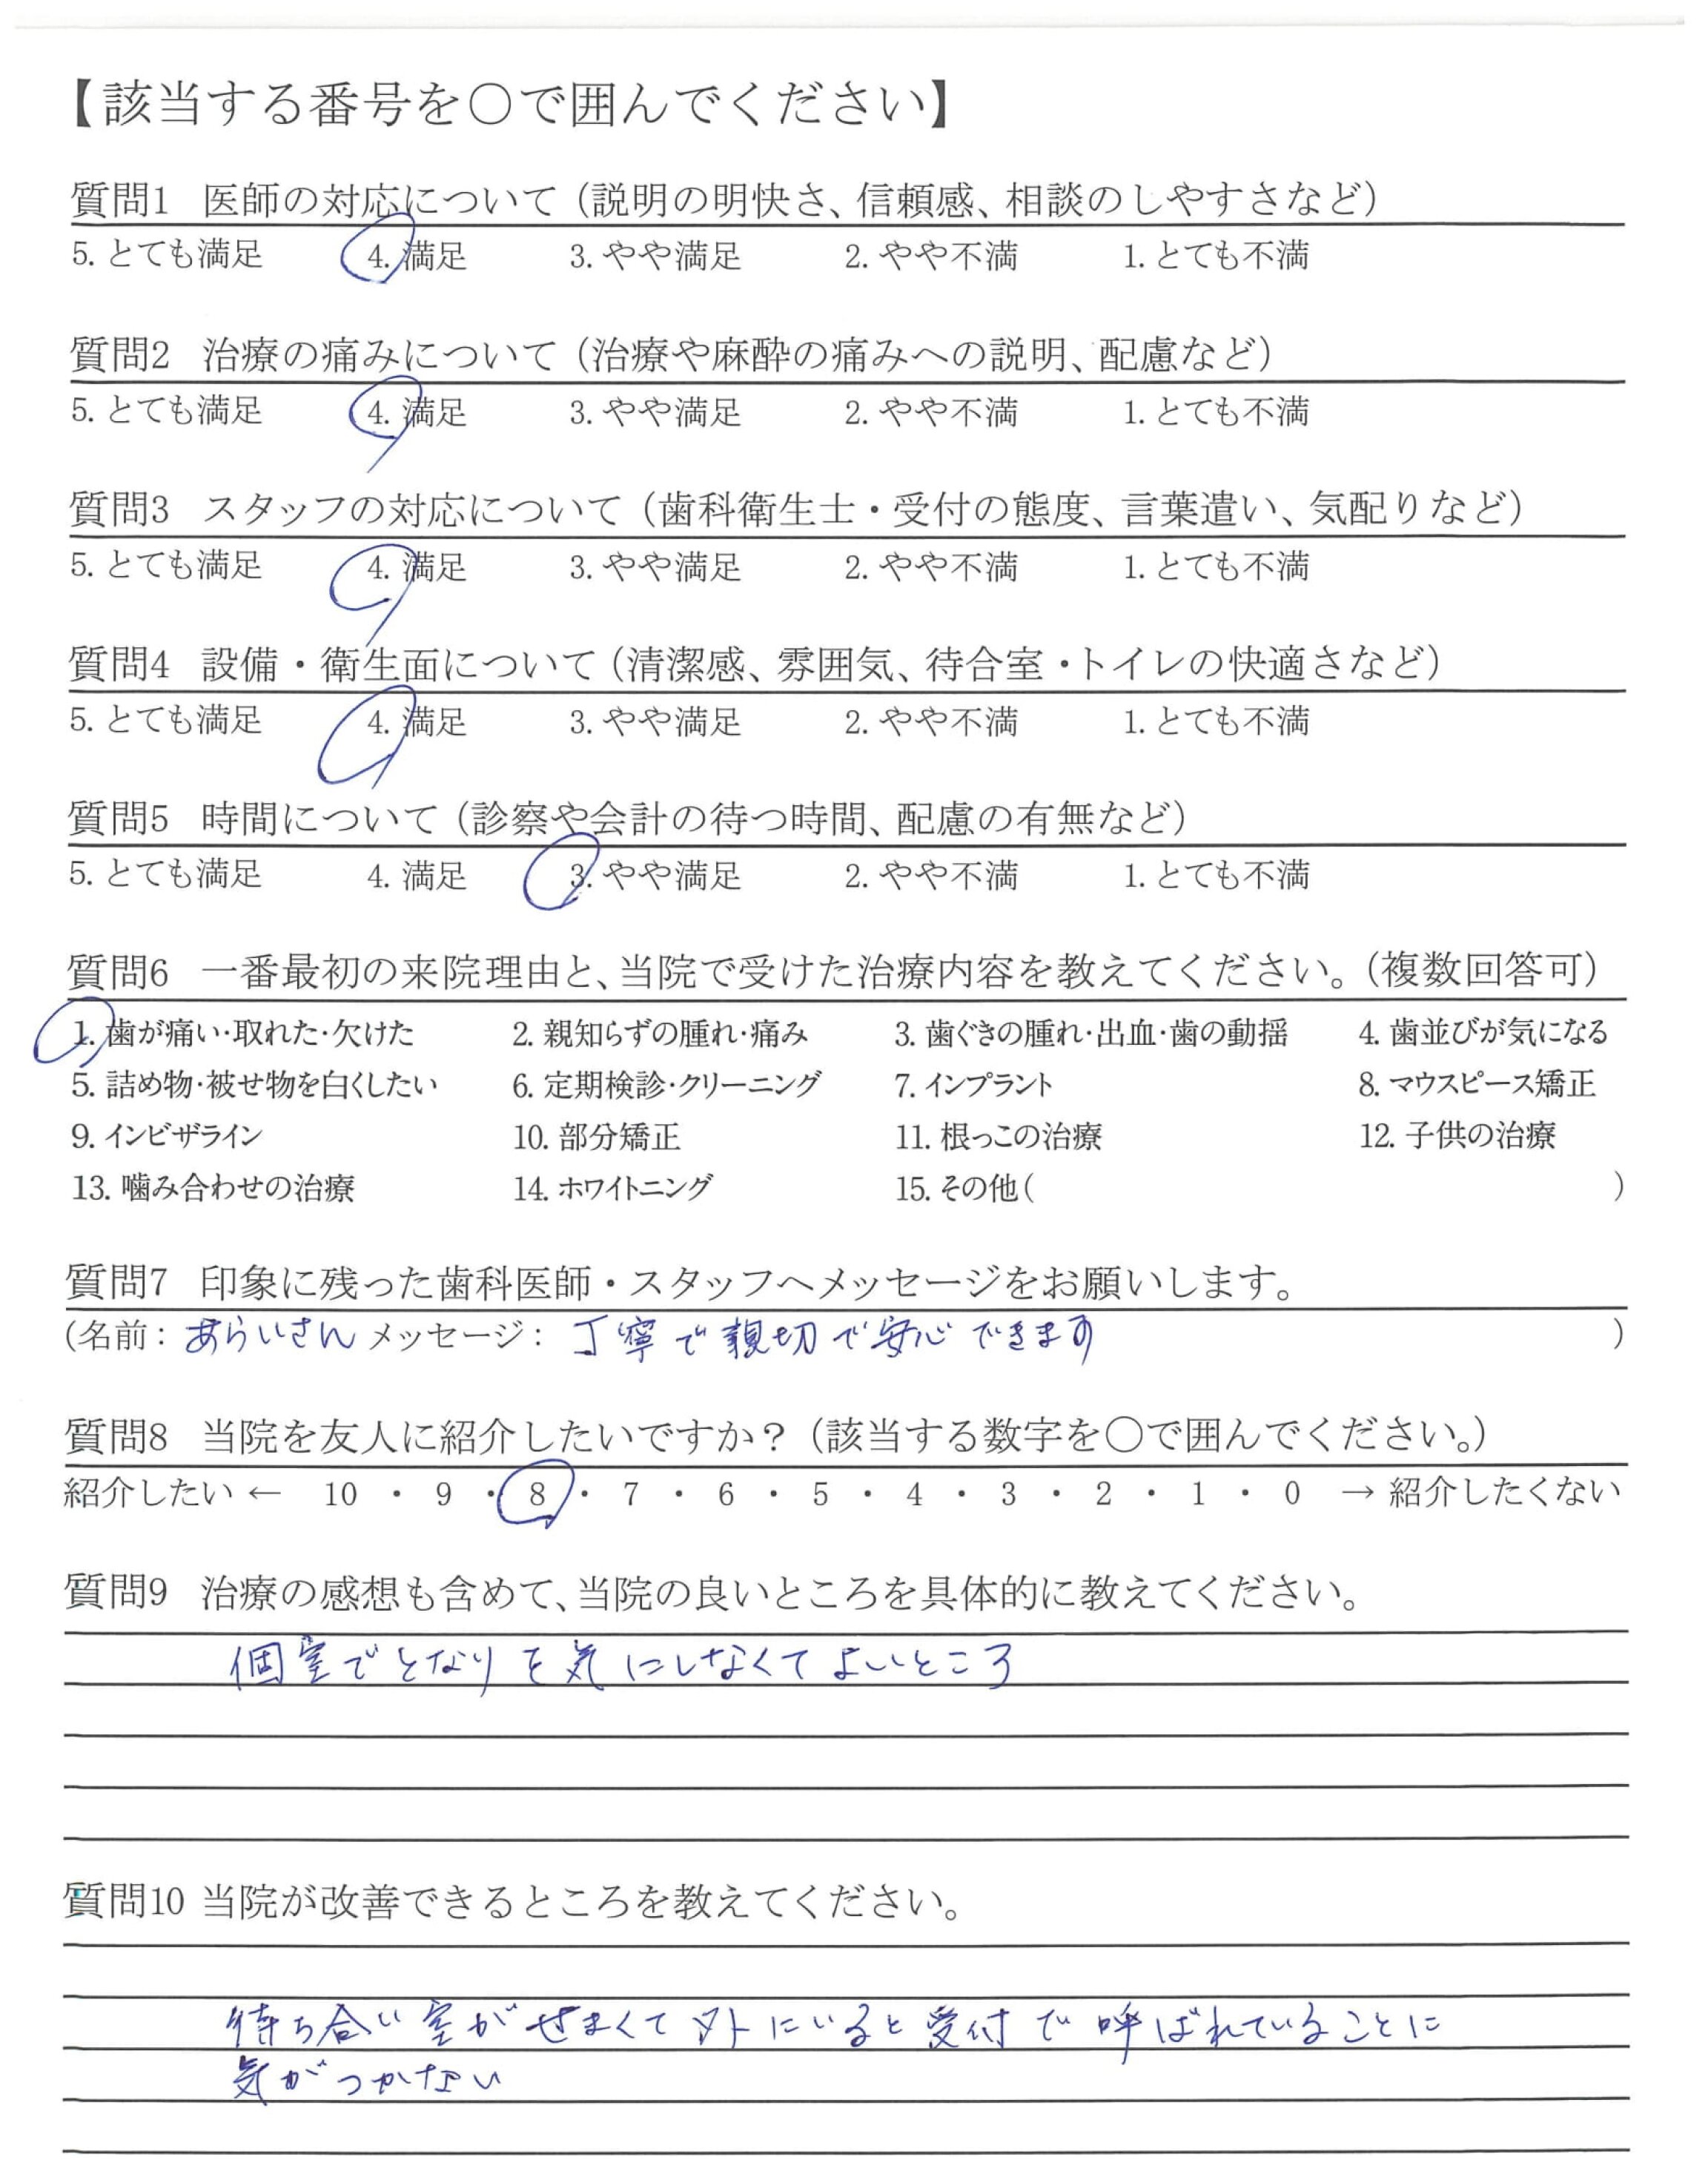 【該当する番号を〇で囲んでください】
質問1 医師の対応について（説明の明快さ、信頼感、相談のしやすさなど）
5. とても満足 4. 満足 3. やや満足 2. やや不満 1. とても不満
質問2 治療の痛みについて（治療や麻酔の痛みへの説明、配慮など）
5. とても満足 4. 満足 3. やや満足 2. やや不満 1. とても不満
質問3 スタッフの対応について（歯科衛生士・受付の態度、言葉遣い、気配りなど）
5. とても満足 4. 満足 3. やや満足 2. やや不満 1. とても不満
質問4 設備・衛生面について（清潔感、雰囲気、待合室・トイレの快適さなど）
5. とても満足 4. 満足 3. やや満足 2. やや不満 1. とても不満
質問5 時間について（診察や会計の待つ時間、配慮の有無など）
5. とても満足 4. 満足 3. やや満足 2. やや不満 1. とても不満
質問6 一番最初の来院理由と、当院で受けた治療内容を教えてください。（複数回答可）
1. 歯が痛い・取れた・欠けた 2. 親知らずの腫れ・痛み 3. 歯ぐきの腫れ・出血・歯の動揺 4. 歯並びが気になる
5. 詰め物・被せ物を白くしたい 6. 定期検診・クリーニング 7. インプラント 8. マウスピース矯正
9. インビザライン 10. 部分矯正 11. 根っこの治療 12. 子供の治療
13. 噛み合わせの治療 14. ホワイトニング 15. その他（ ）
質問7 印象に残った歯科医師・スタッフへメッセージをお願いします。
（名前：あらいさん メッセージ：丁寧で親切で安心できます ）
質問8 当院を友人に紹介したいですか？（該当する数字を〇で囲んでください。）
紹介したい ← 10 ・ 9 ・ 8 ・ 7 ・ 6 ・ 5 ・ 4 ・ 3 ・ 2 ・ 1 ・ 0 → 紹介したくない
質問9 治療の感想も含めて、当院の良いところを具体的に教えてください。
個室でとなりを気にしなくてよいところ
質問10 当院が改善できるところを教えてください。
待ち合い室がせまくて外にいると受付で呼ばれていることに
気がつかない